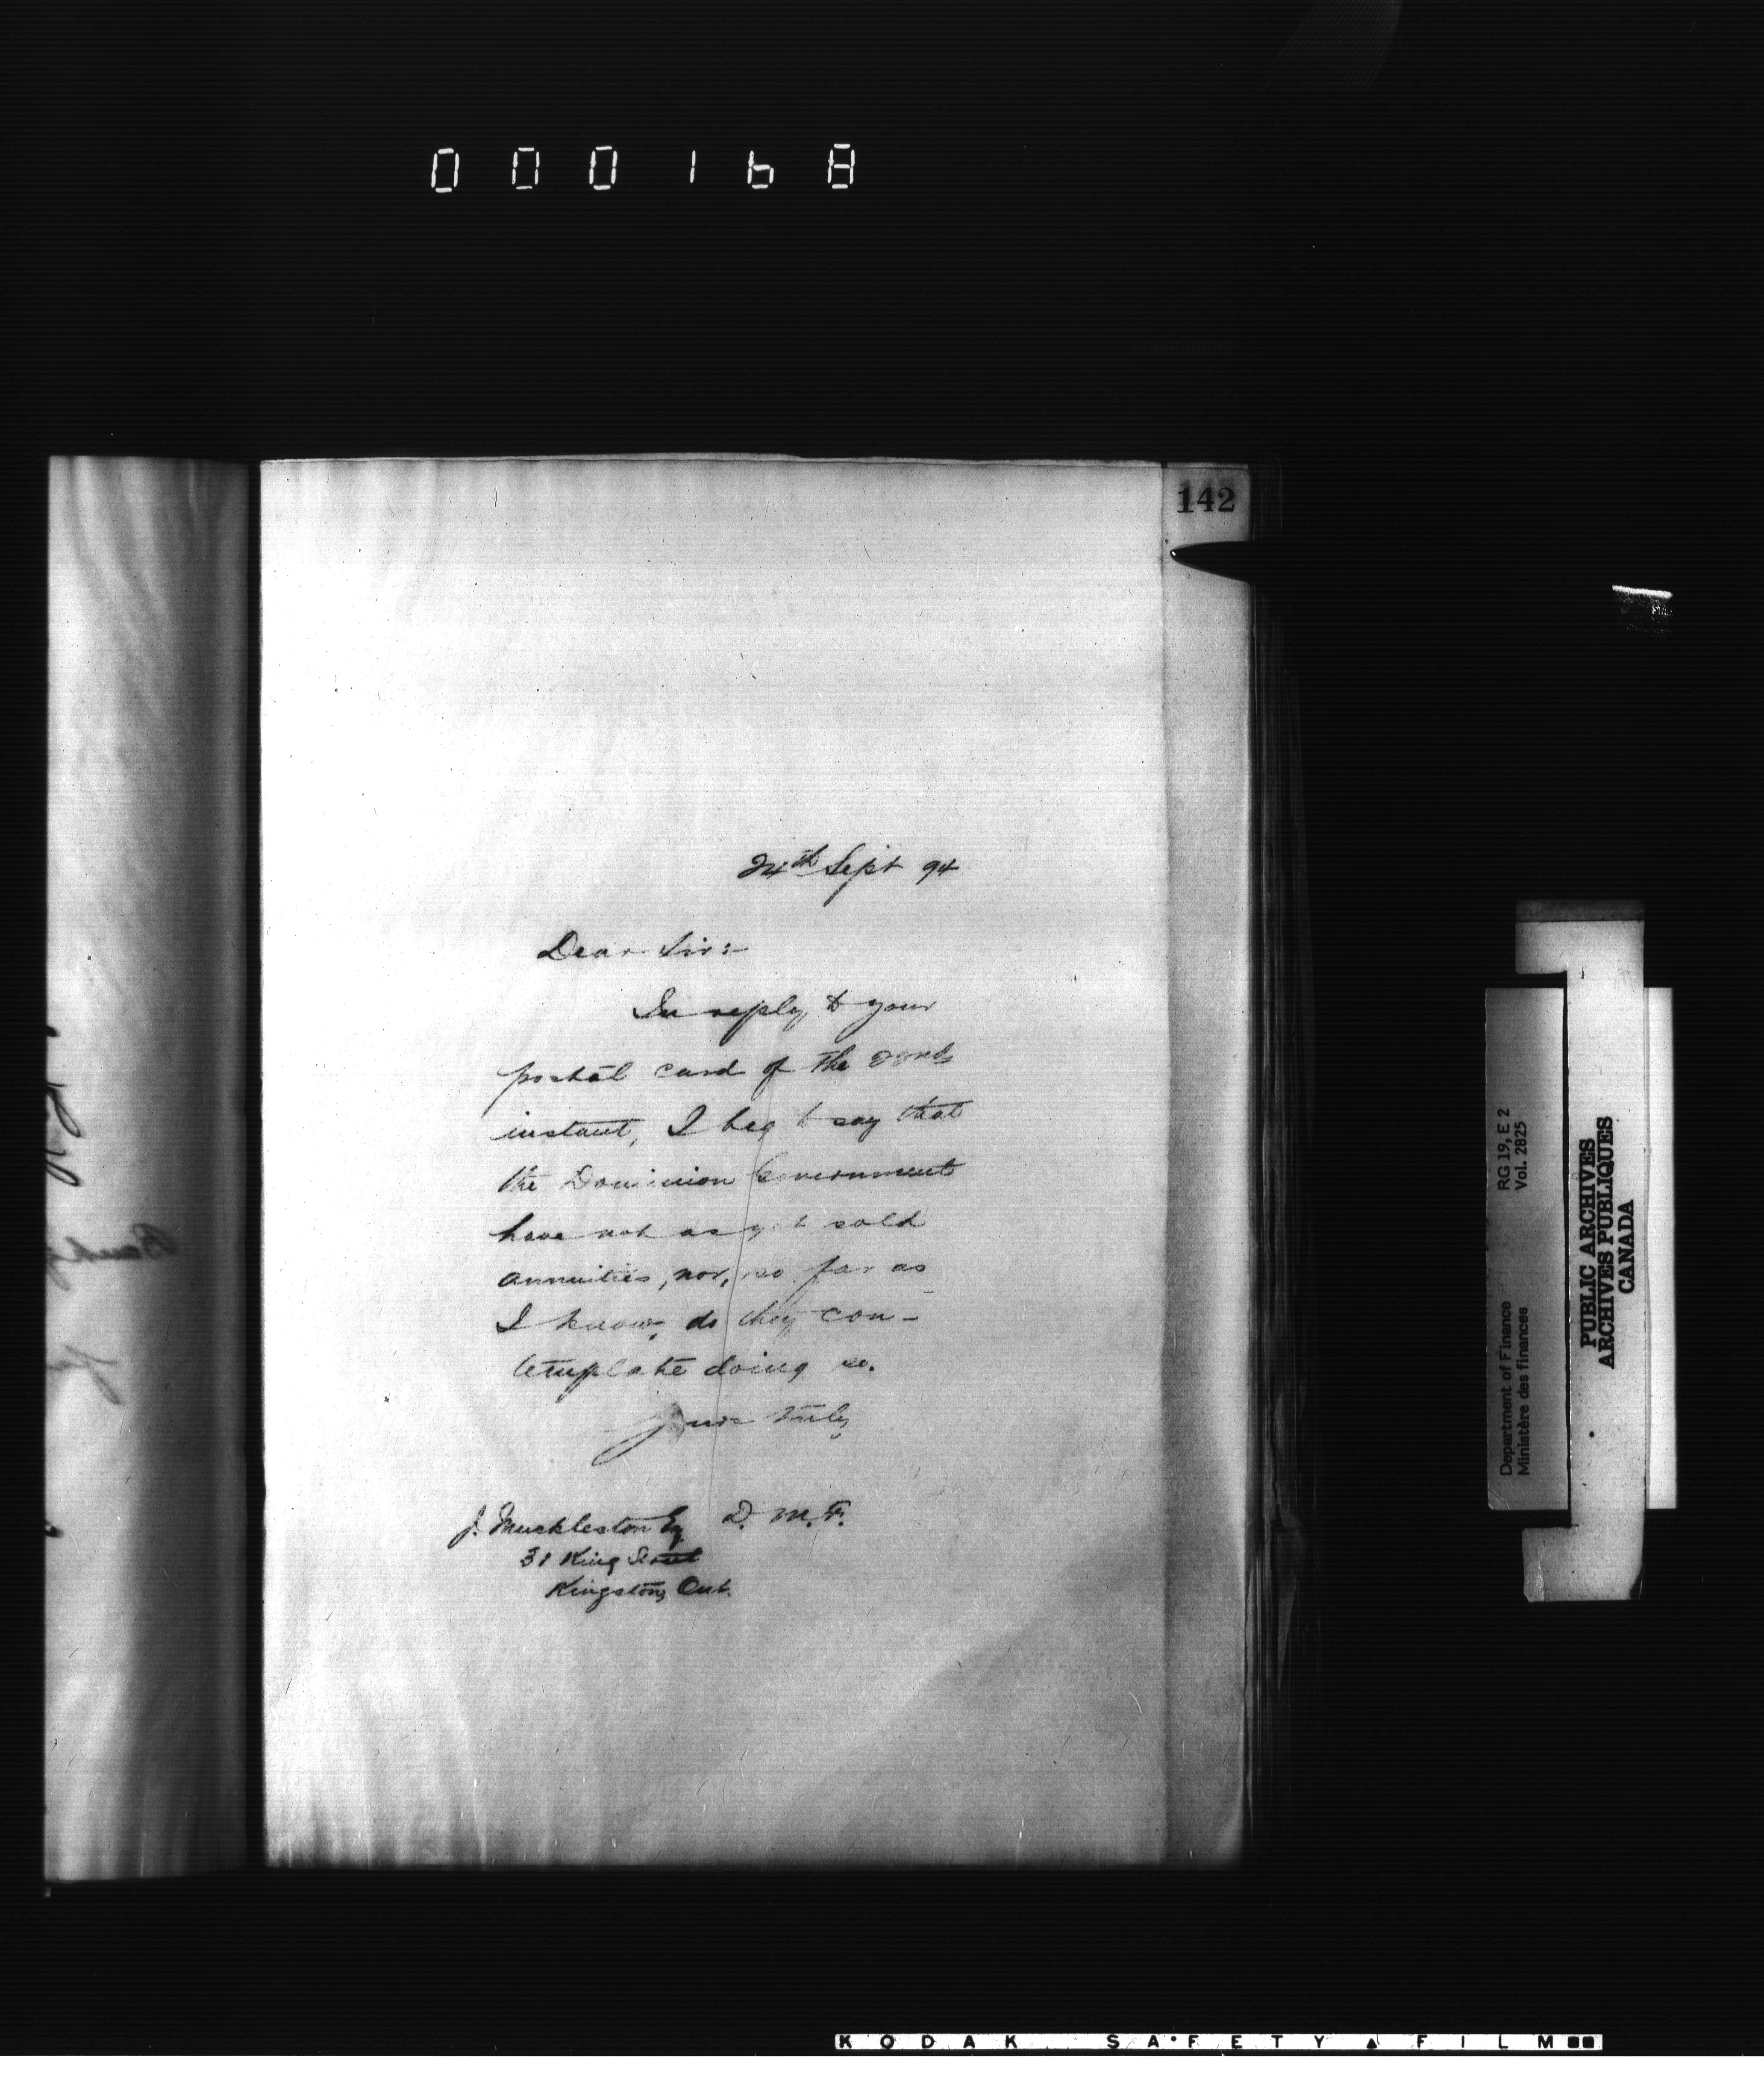 000168
142
24th Sept 94
Dear Sir:-
In reply to your
postal card of the 22nd
instant, I beg to say that
the Dominion Government
have not as yet sold
annuities, nor, so far as
I know, do they con-
template doing so.
Yours truly
D. M. F.
J. Muckleston Esq
31 King Street
Kingston, Ont.
RG 19, E 2
Vol. 2825
Department of Finance
Ministère des finances
PUBLIC ARCHIVES
ARCHIVES PUBLIQUES
CANADA
KODAK SAFETY FILM